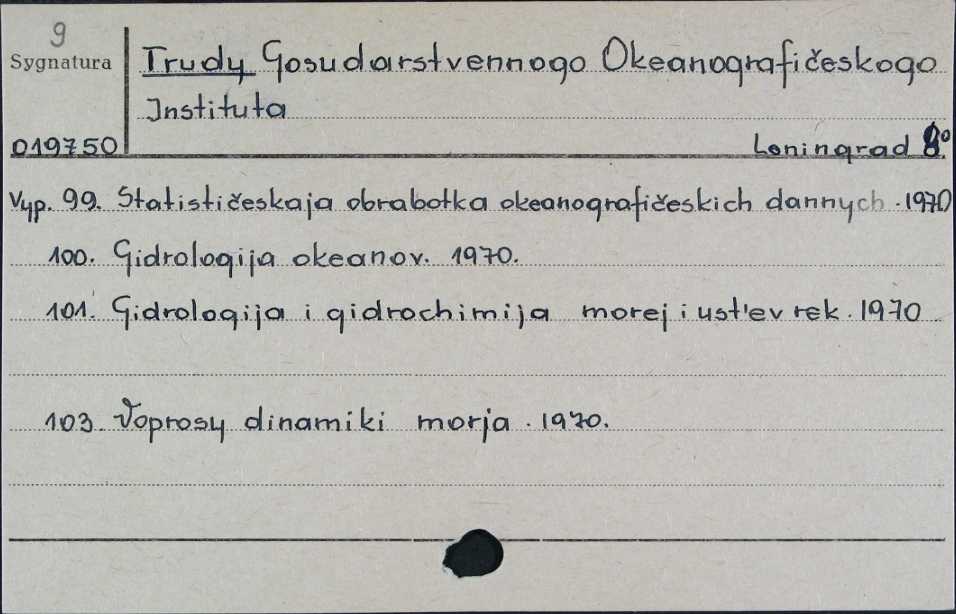 9
Sygnatura
Trudy Gosudarstvennogo Okeanografičeskogo
Instituta
019750
Leningrad 8°
Vyp. 99. Statističeskaja obrabotka okeanografičeskich dannych. 1970
100. Gidrologija okeanov. 1970.
101. Gidrologija i gidrochimija morej i ust'ev rek. 1970
103. Voprosy dinamiki morja. 1970.